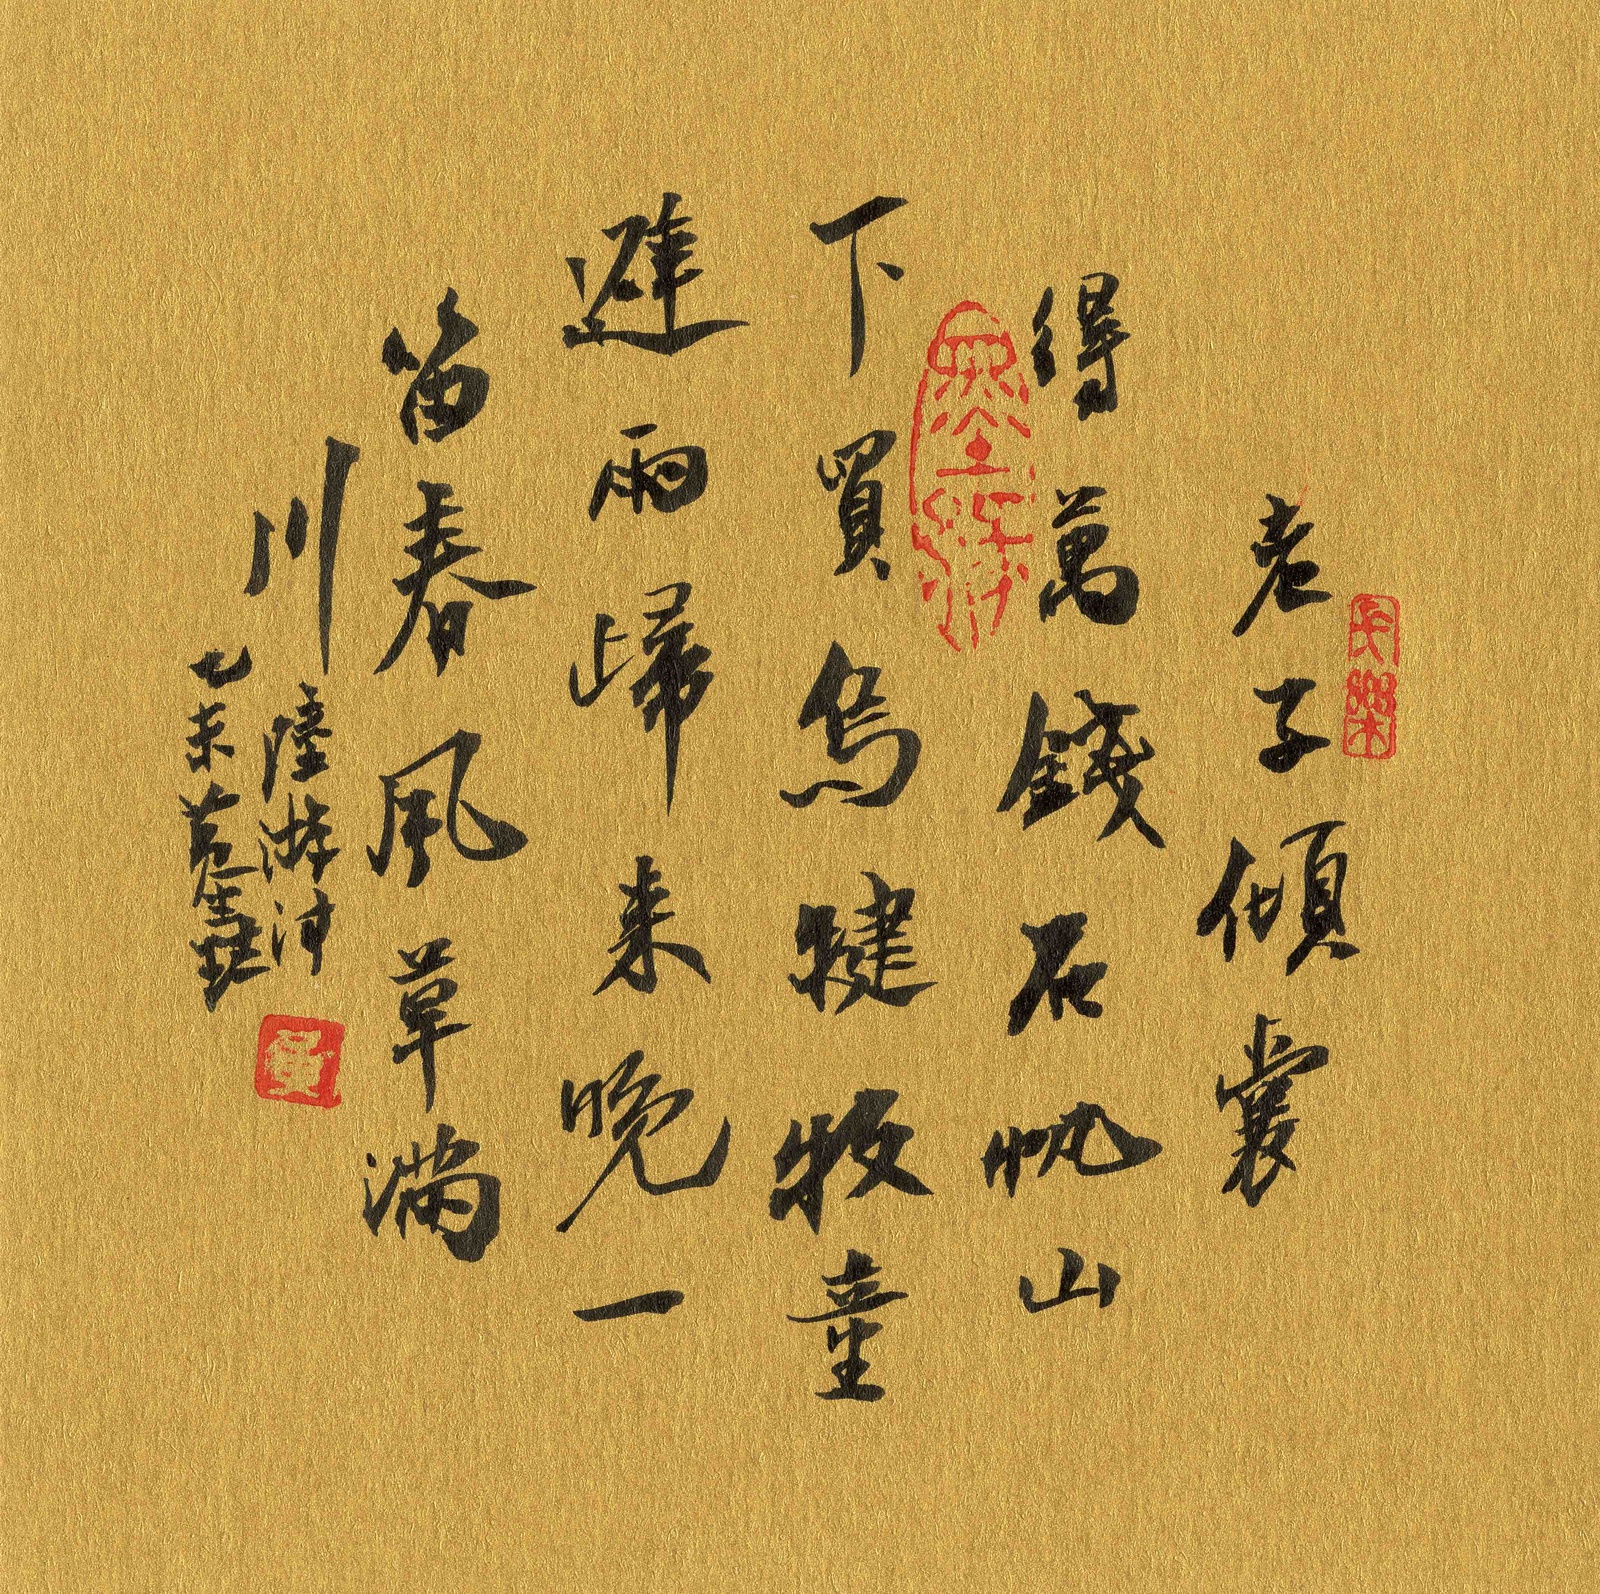 老子傾囊
得萬錢石帆山
下買烏犍牧童
避雨歸来晚一
笛春風草滿
川
陸游诗
乙未
長樂